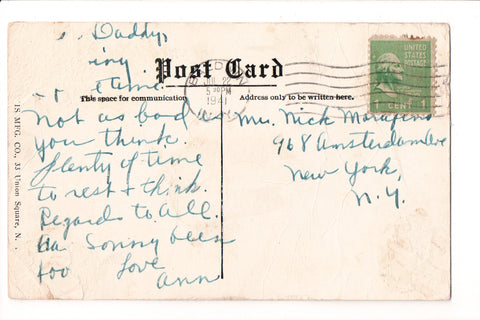 Daddy,
time
Post Card
This space for communication
Address only to be written here.
JUL 22
5 30 PM
1941
UNITED
STATES
POSTAGE
1 CENT 1
Not as bad as
you think.
Plenty of time
to rest + think.
Regards to all.
Sonny been
too Love
Ann
Mrs. Nick
968 Amsterdam Ave
New York,
N.Y.
MFG. CO., 33 Union Square, N.